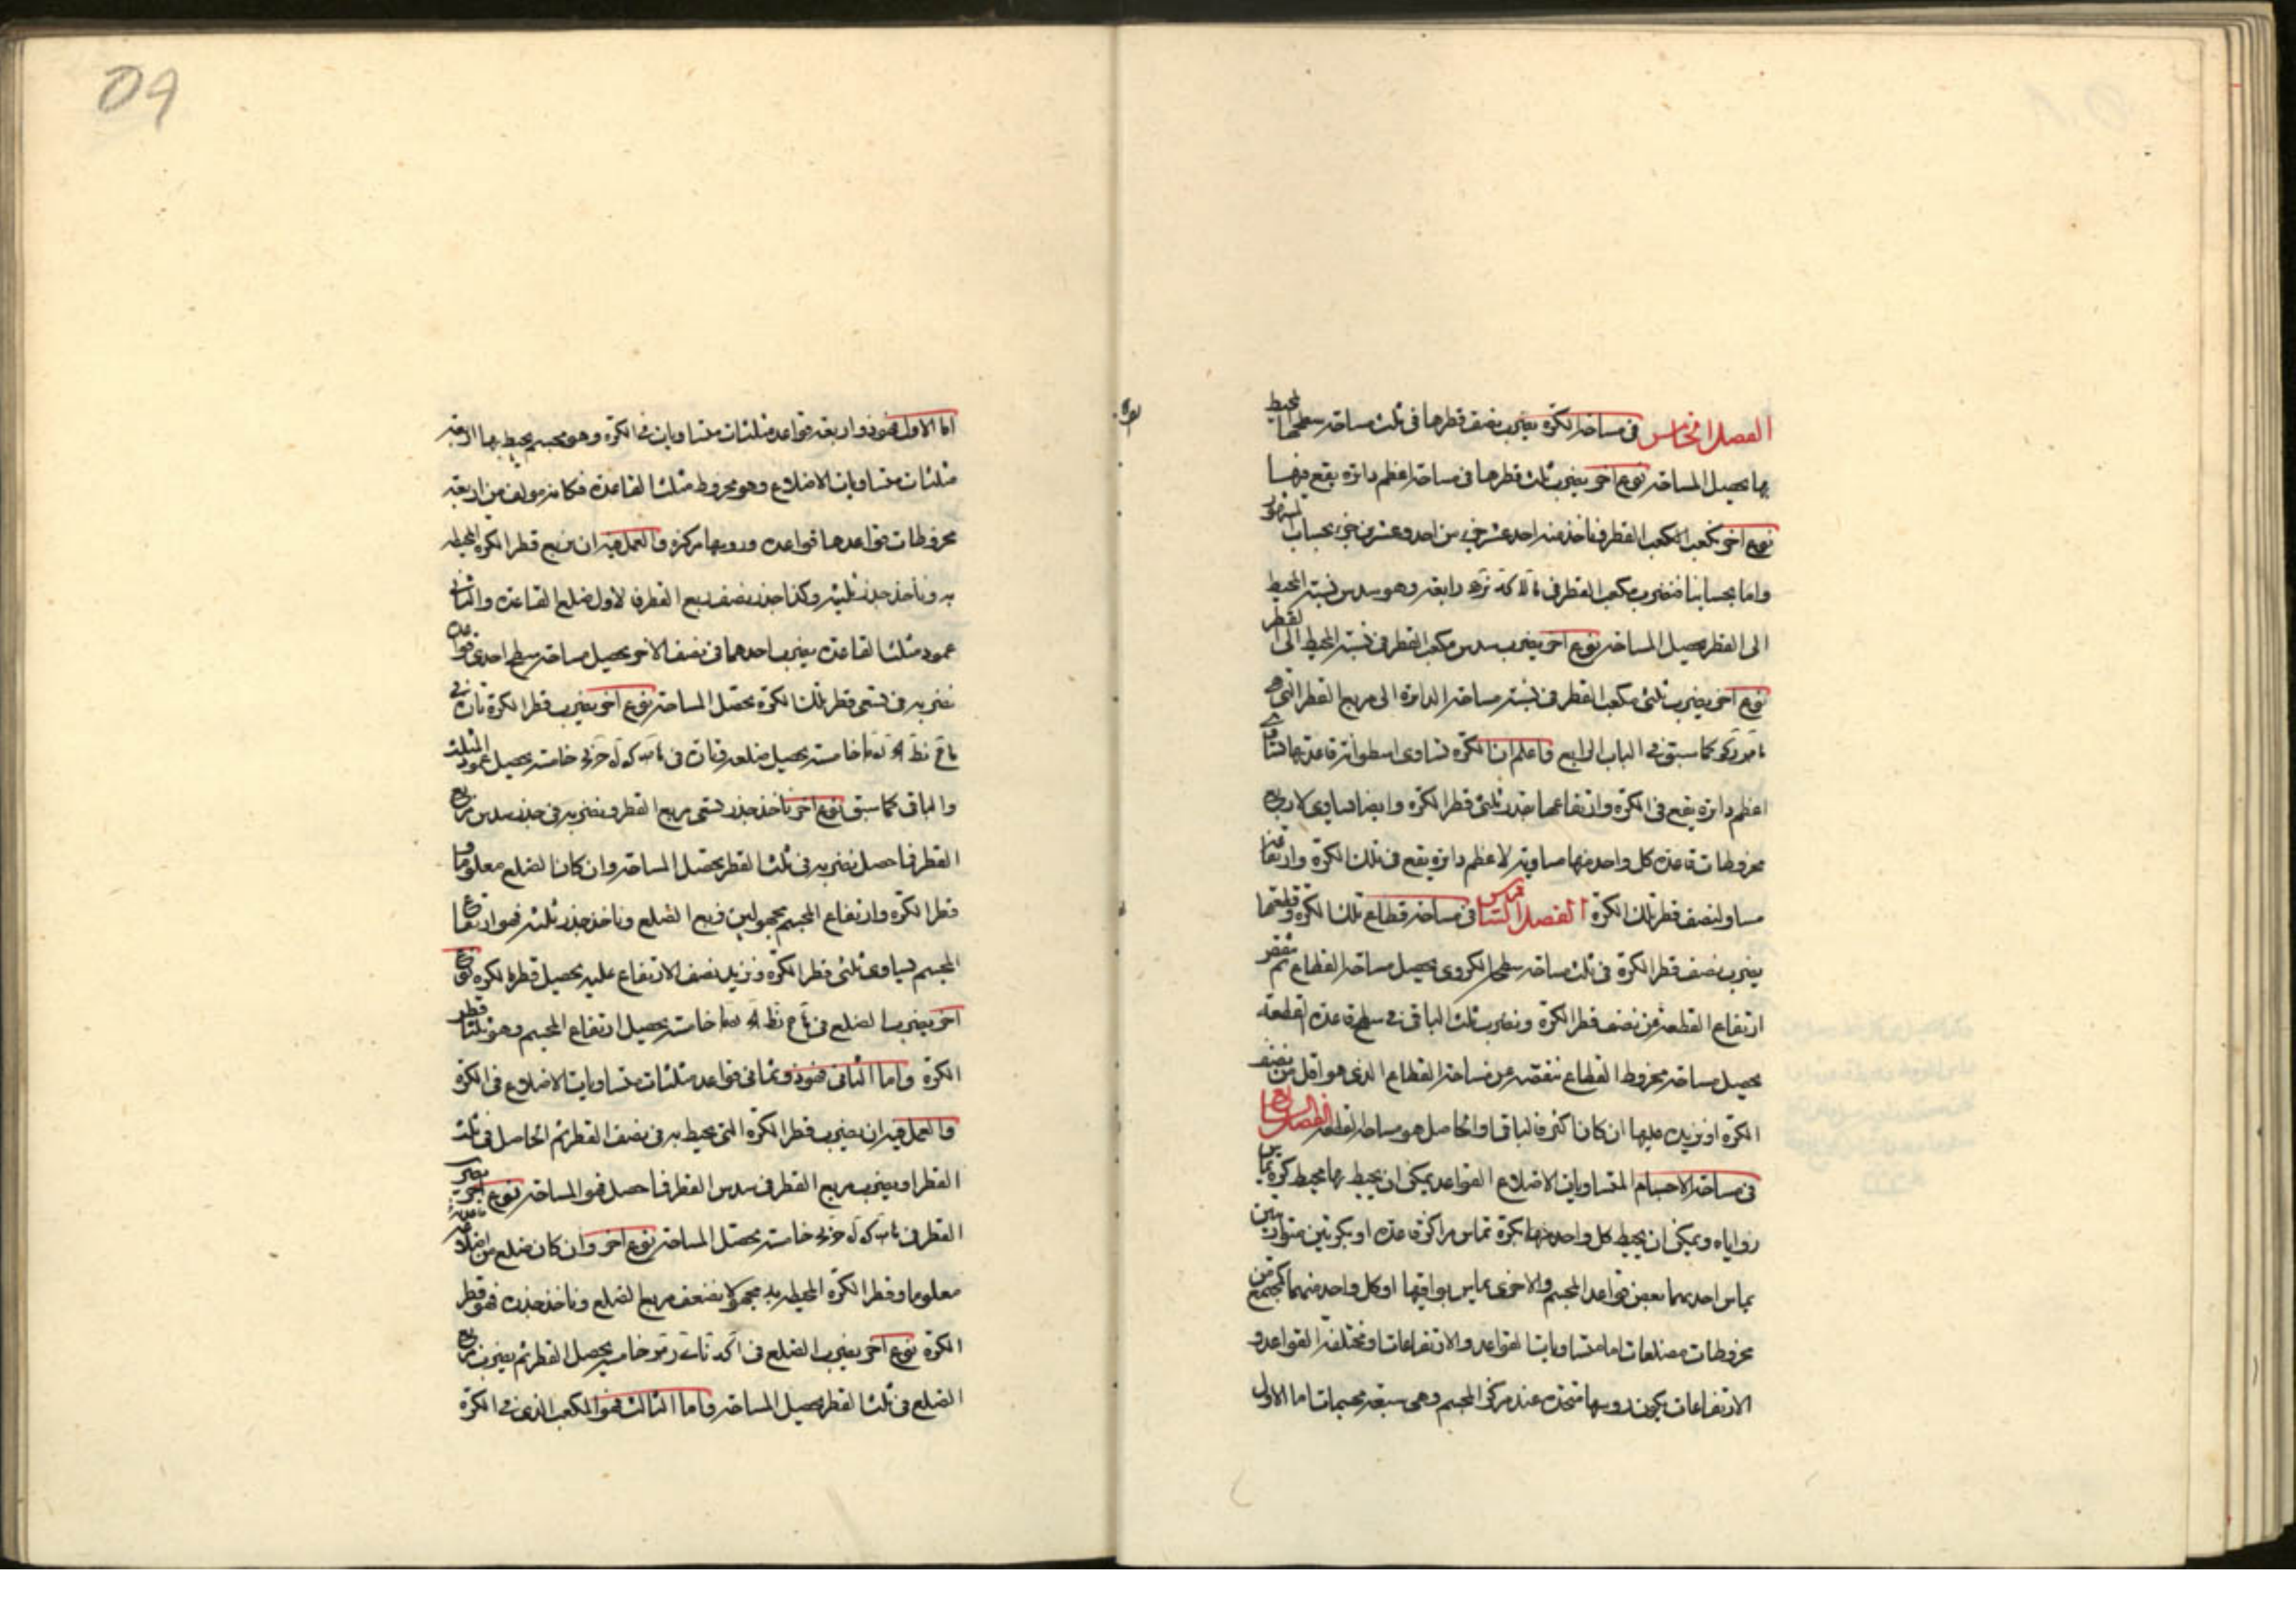 الفصل الخامس في مساحة الكرة يضرب نصف قطرها في ثلث مساحة سطحها المحيط
بها يحصل المساحة نوع آخر يضرب ثلث قطرها في مساحة اعظم دايرة يقع فيها
نوع آخر نكعب القطر فناخذ منه احد عشر جزء من احد وعشرين جزء بحساب المشهور
واما بحسابنا فنضرب مكعب القطر في رابعة وهو سدس نسبة المحيط
الى القطر يحصل المساحة نوع آخر يضرب سدس مكعب القطر في نسبة المحيط الى القطر
نوع آخر يضرب ثلثي مكعب القطر في نسبة مساحة الدايرة الى مربع القطر التي هي
كما سبق في الباب الرابع واعلم ان الكرة تساوي اسطوانة قاعدتها تساوي
اعظم دايرة يقع في الكرة وارتفاعها بقدر ثلثي قطر الكرة وايضا يساوي لاربع
مخروطات قاعدة كل واحد منها مساوية لاعظم دايرة يقع في تلك الكرة وارتفاعه
مساو لنصف قطر تلك الكرة الفصل السادس في مساحة قطاع تلك الكرة وقطعتها
يضرب نصف قطر الكرة في ثلث مساحة سطح الكروي يحصل مساحة القطاع ثم ننقص
ارتفاع القطعة من نصف قطر الكرة ونضرب ثلث الباقي في سطح قاعدة القطعة
يحصل مساحة مخروط القطاع ننقصه عن مساحة القطاع الذي هو اقل من نصف
الكرة او نزيده عليها ان كان اكثر فالباقي او الحاصل هو مساحة القطعة الفصل السابع
في مساحة الاجسام المتساويات الاضلاع القواعد يمكن ان يحيط بها محيط كرة يماس
زواياه ويمكن ان يحيط كل واحد منها بكرة تماس مراكز قاعدة او بكرتين متوازيتين
يماس احديهما بعض قواعد المجسم والاخرى يماس بواقيها او كل واحد منهما كمجتمع من
مخروطات مضلعات اما متساويات القواعد والارتفاعات او مختلفة القواعد و
الارتفاعات يكون رؤسها متحدة عند مركز المجسم وهي سبعة مجسمات اما الاول
اما الاول فهو ذو اربعة قواعد مثلثات متساويات في الكرة وهو مجسم يحيط بها اربعة
مثلثات متساويات الاضلاع وهو مخروط مثلث القاعدة فكانه مولف من اربعة
مخروطات قواعدها قواعده ورؤسها مركزه والعمل فيه ان نربع قطر الكرة المحيطة
به وناخذ جذر ثلثيه وكذا جذر نصف ربع القطر فالاول ضلع القاعدة والثاني
عمود مثلث القاعدة يضرب احدهما في نصف الاخر يحصل مساحة سطح احدى قواعده
نضربه في تسعي قطر تلك الكرة يحصل المساحة نوع آخر يضرب قطر الكرة تارة في
خامسة يحصل ضلعه وتارة في خامسة يحصل عمود المثلث
والباقي كما سبق نوع آخر ناخذ جذر تسعي مربع القطر ونضربه في جذر سدس مربع
القطر فما حصل نضربه في ثلث القطر يحصل المساحة وان كان الضلع معلوما و
قطر الكرة وارتفاع المجسم مجهولين نربع الضلع وناخذ جذر ثلثيه فهو ارتفاع
المجسم يساوي ثلثي قطر الكرة ونزيد نصف الارتفاع عليه يحصل قطر الكرة نوع
آخر يضرب الضلع في خامسة يحصل ارتفاع المجسم وهو ثلثا قطر
الكرة واما الثاني فهو ذو ثماني قواعد مثلثات متساويات الاضلاع في الكرة
والعمل فيه ان يضرب قطر الكرة التي يحيط به في نصف القطر ثم الحاصل في ثلث
القطر او يضرب مربع القطر في سدس القطر فما حصل فهو المساحة نوع آخر يضرب
القطر في خامسة يحصل المساحة نوع آخر وان كان ضلع من اضلاعه
معلوما وقطر الكرة المحيطة به مجهولا نضعف مربع الضلع وناخذ جذره فهو قطر
الكرة نوع آخر يضرب الضلع في خامسة يحصل القطر ثم يضرب مربع
الضلع في ثلث القطر يحصل المساحة واما الثالث فهو المكعب الذي في الكرة